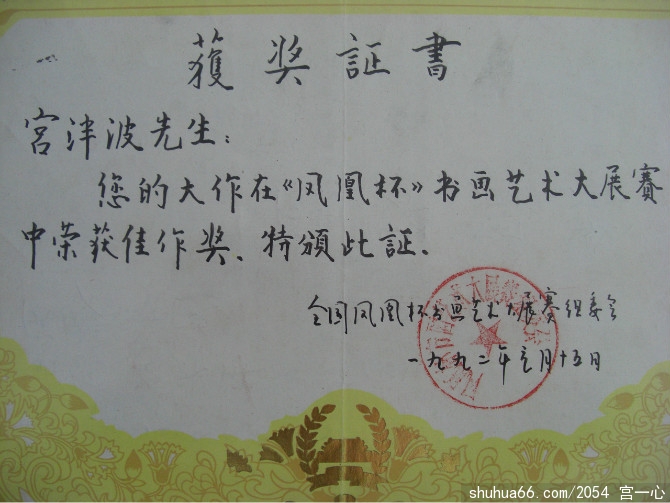 獲奖証書
宮津波先生：
您的大作在《凤凰杯》书画艺术大展赛
中荣获佳作奖、特頒此証.
全国凤凰杯书画艺术大展赛组委会
一九九二年元月十五日
shuhua66.com/2054 宫一心